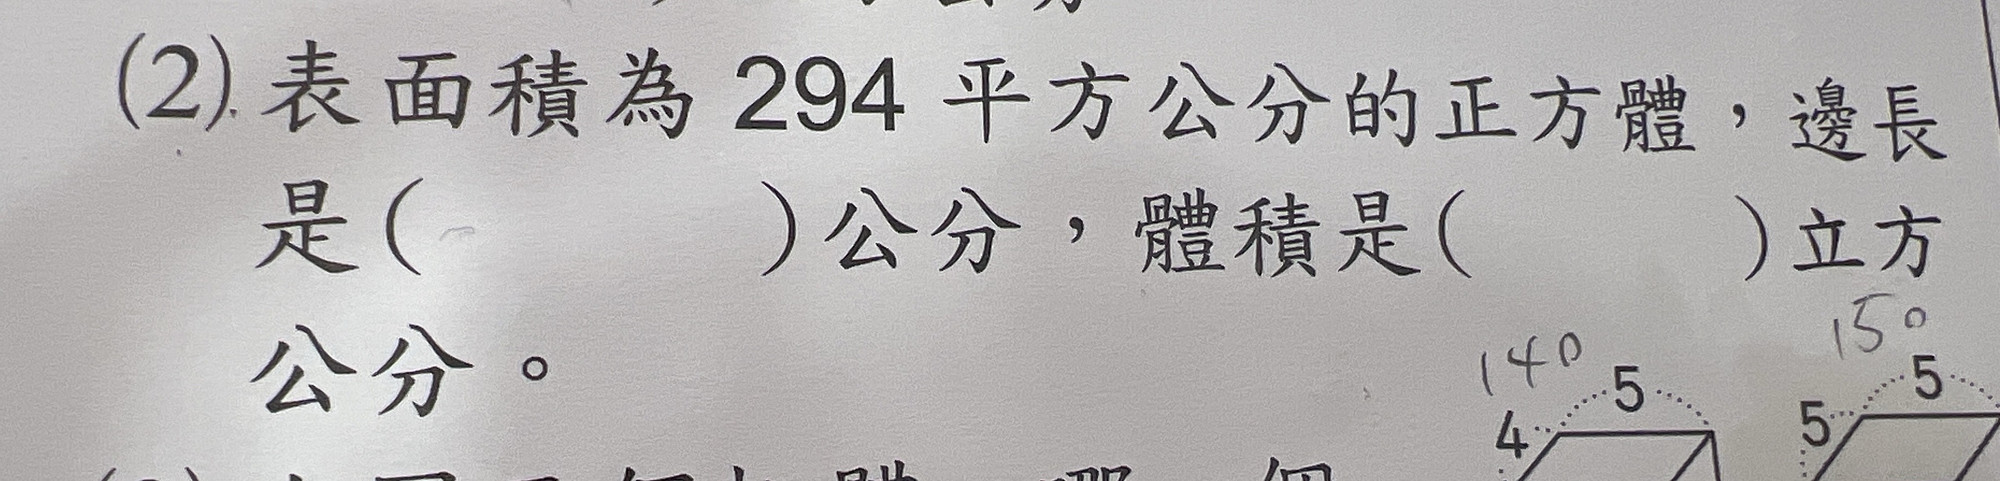 (2).表面積為 294 平方公分的正方體，邊長
是(　　　)公分，體積是(　　　)立方
公分。
140
150
5
5
4
5